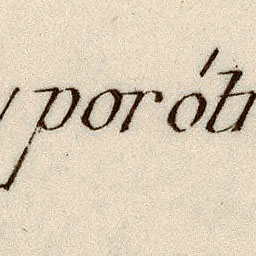 y por ótr